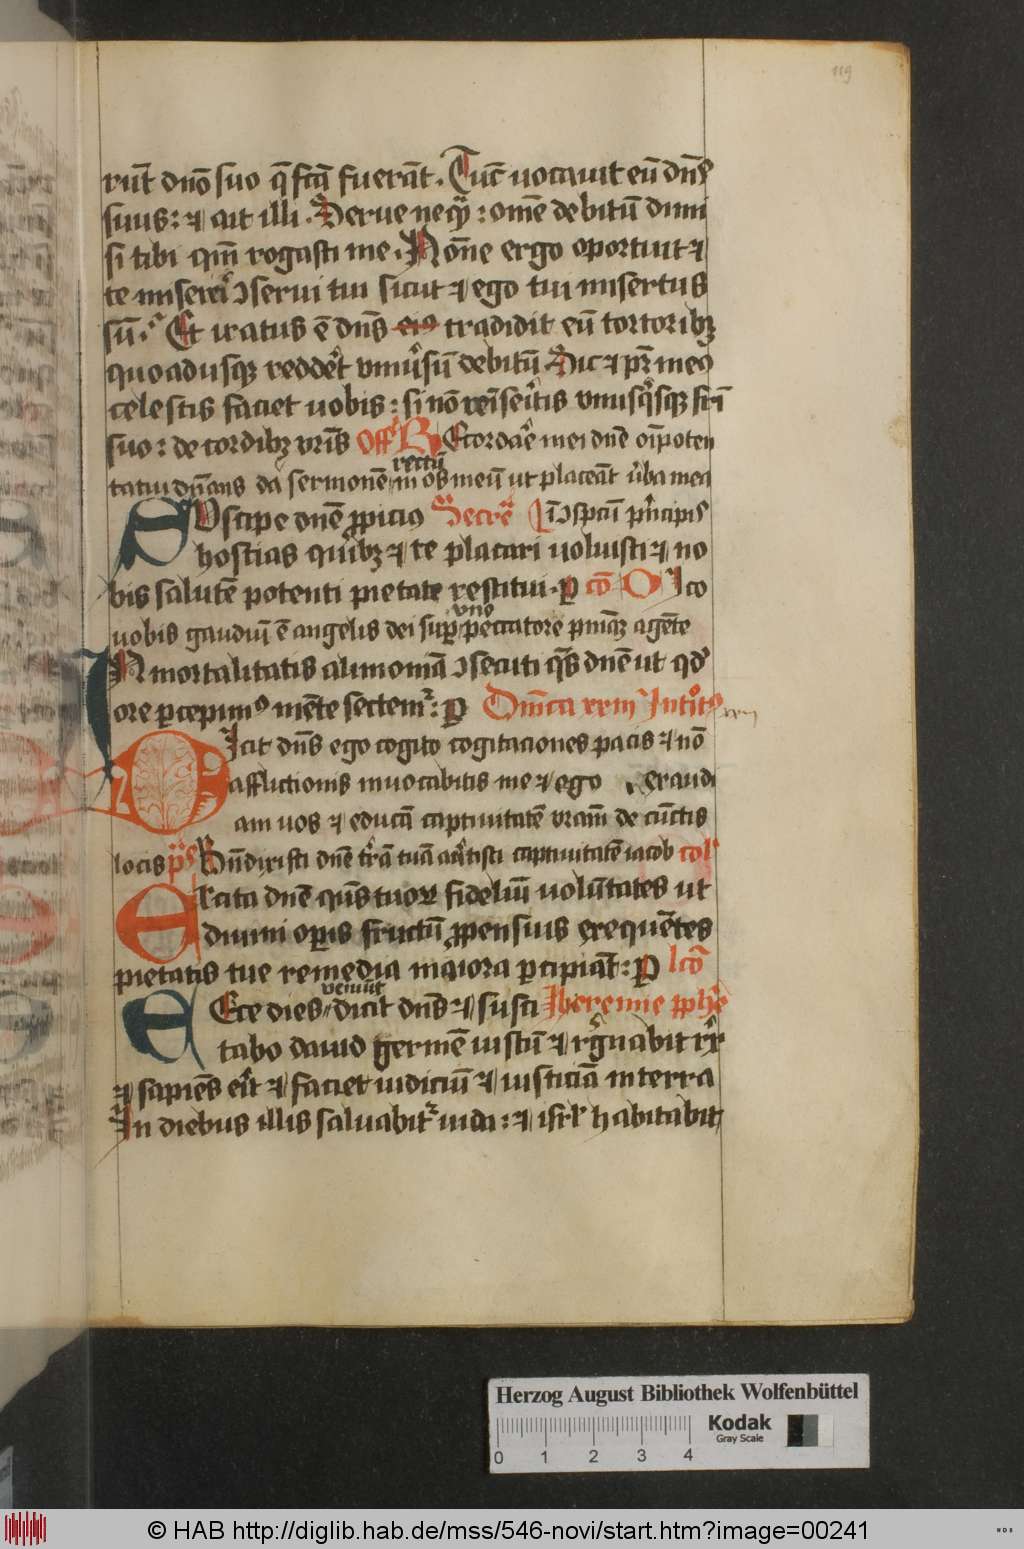 119
runt dnō suo q̄ fcā fuerāt. Tūc uocauit eū dn̄s
suus: ⁊ ait illi. Serue neqͣ: om̄e debitū dimi
si tibi qm̄ rogasti me. Nōne ergo oportuit ⁊
te misereri ꝯserui tui sicut ⁊ ego tui misertus
sū. Et iratus ē dn̄s eiꝰ tradidit eū tortoribꝫ
quoadusqꝫ reddēt vniu̓sū debitū. Sic ⁊ pr̄ meꝰ
celestis faciet uobis: si nō remiseritis vnusqͥsqꝫ fr̄i
suo: de cordibꝫ vr̄is Off̄ Recordar̄e mei dn̄e oīpoten
rectū
tatui dn̄ans da sermonē in os meū ut placeāt u̓ba mea
Suscipe dn̄e ꝓpiciꝰ Secrē Iī ꝯspcū pͥncipis
hostias quibꝫ ⁊ te placari uoluisti ⁊ no
bis salutē potenti pietate restitui. ꝑ cō Dico
vno
uobis gaudiū ē angelis dei suꝑ peccatore pn̄iaꝫ agēte
Inmortalitatis alimoniā ꝯsecuti qs̄ dn̄e ut qd̓
ore ꝑcepimꝰ mēte sectemr̄: ꝑ Dn̄ica xxiii Introitꝰ
Dicit dn̄s ego cogito cogitaciones pacis ⁊ nō
afflictionis inuocabitis me ⁊ ego exaudi
am uos ⁊ educā captiuitatē vram̄ de cūctis
locis p̄s Bn̄dixisti dn̄e tr̄ā tuā au̓tisti captiuitatē iacob col̓
Excita dn̄e qs̄ tuoꝝ fideliū volūtates ut
diuini oꝑis fructū ꝓpensius exequētes
pietatis tue remedia maiora ꝑcipiāt: ꝑ lcō
veniūt
Ecce dies dicit dn̄s ⁊ susci Iheremie ꝓph̄e
tabo dauid germē iustū ⁊ regnabit rex
⁊ sapiēs erit ⁊ faciet iudiciū ⁊ iusticiā in terra
In diebus illis saluabitr̄ iuda: ⁊ isrl̓ habitabit
Herzog August Bibliothek Wolfenbüttel
Kodak
Gray Scale
0 1 2 3 4
© HAB http://diglib.hab.de/mss/546-novi/start.htm?image=00241